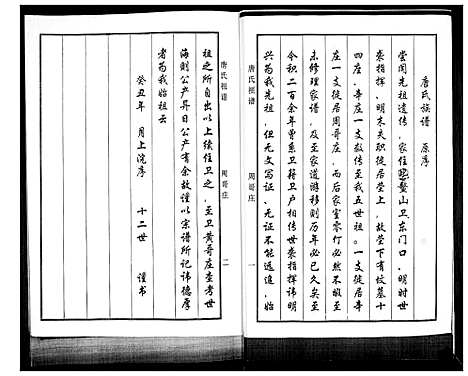 唐氏族谱　原序
尝闻先祖遗传，家住鳌山卫东门口，明时世
袭指挥、明末失职徙居莹上，故莹下有坟墓十
四座，辛庄一支数传至我五世祖。一支徙居辛
庄一支徙居周哥庄，而后家室零仃必然不暇，并
未修理家谱，及至家道游移则历年必已久矣至
今积二百余年曾系卫籍卫户相传世袭指挥讳明
兴为我先祖，但无文写证、无证不能远追，始
唐氏祖谱　周哥庄　一
唐氏祖谱　周哥庄　二
祖之所自出以上续住卫之，至卫黄哥庄查考世
海则公产昇日公产有余故谨以宗谱所记讳德厚
者为我始祖云
癸丑年　月上浣序　十二世　谨书